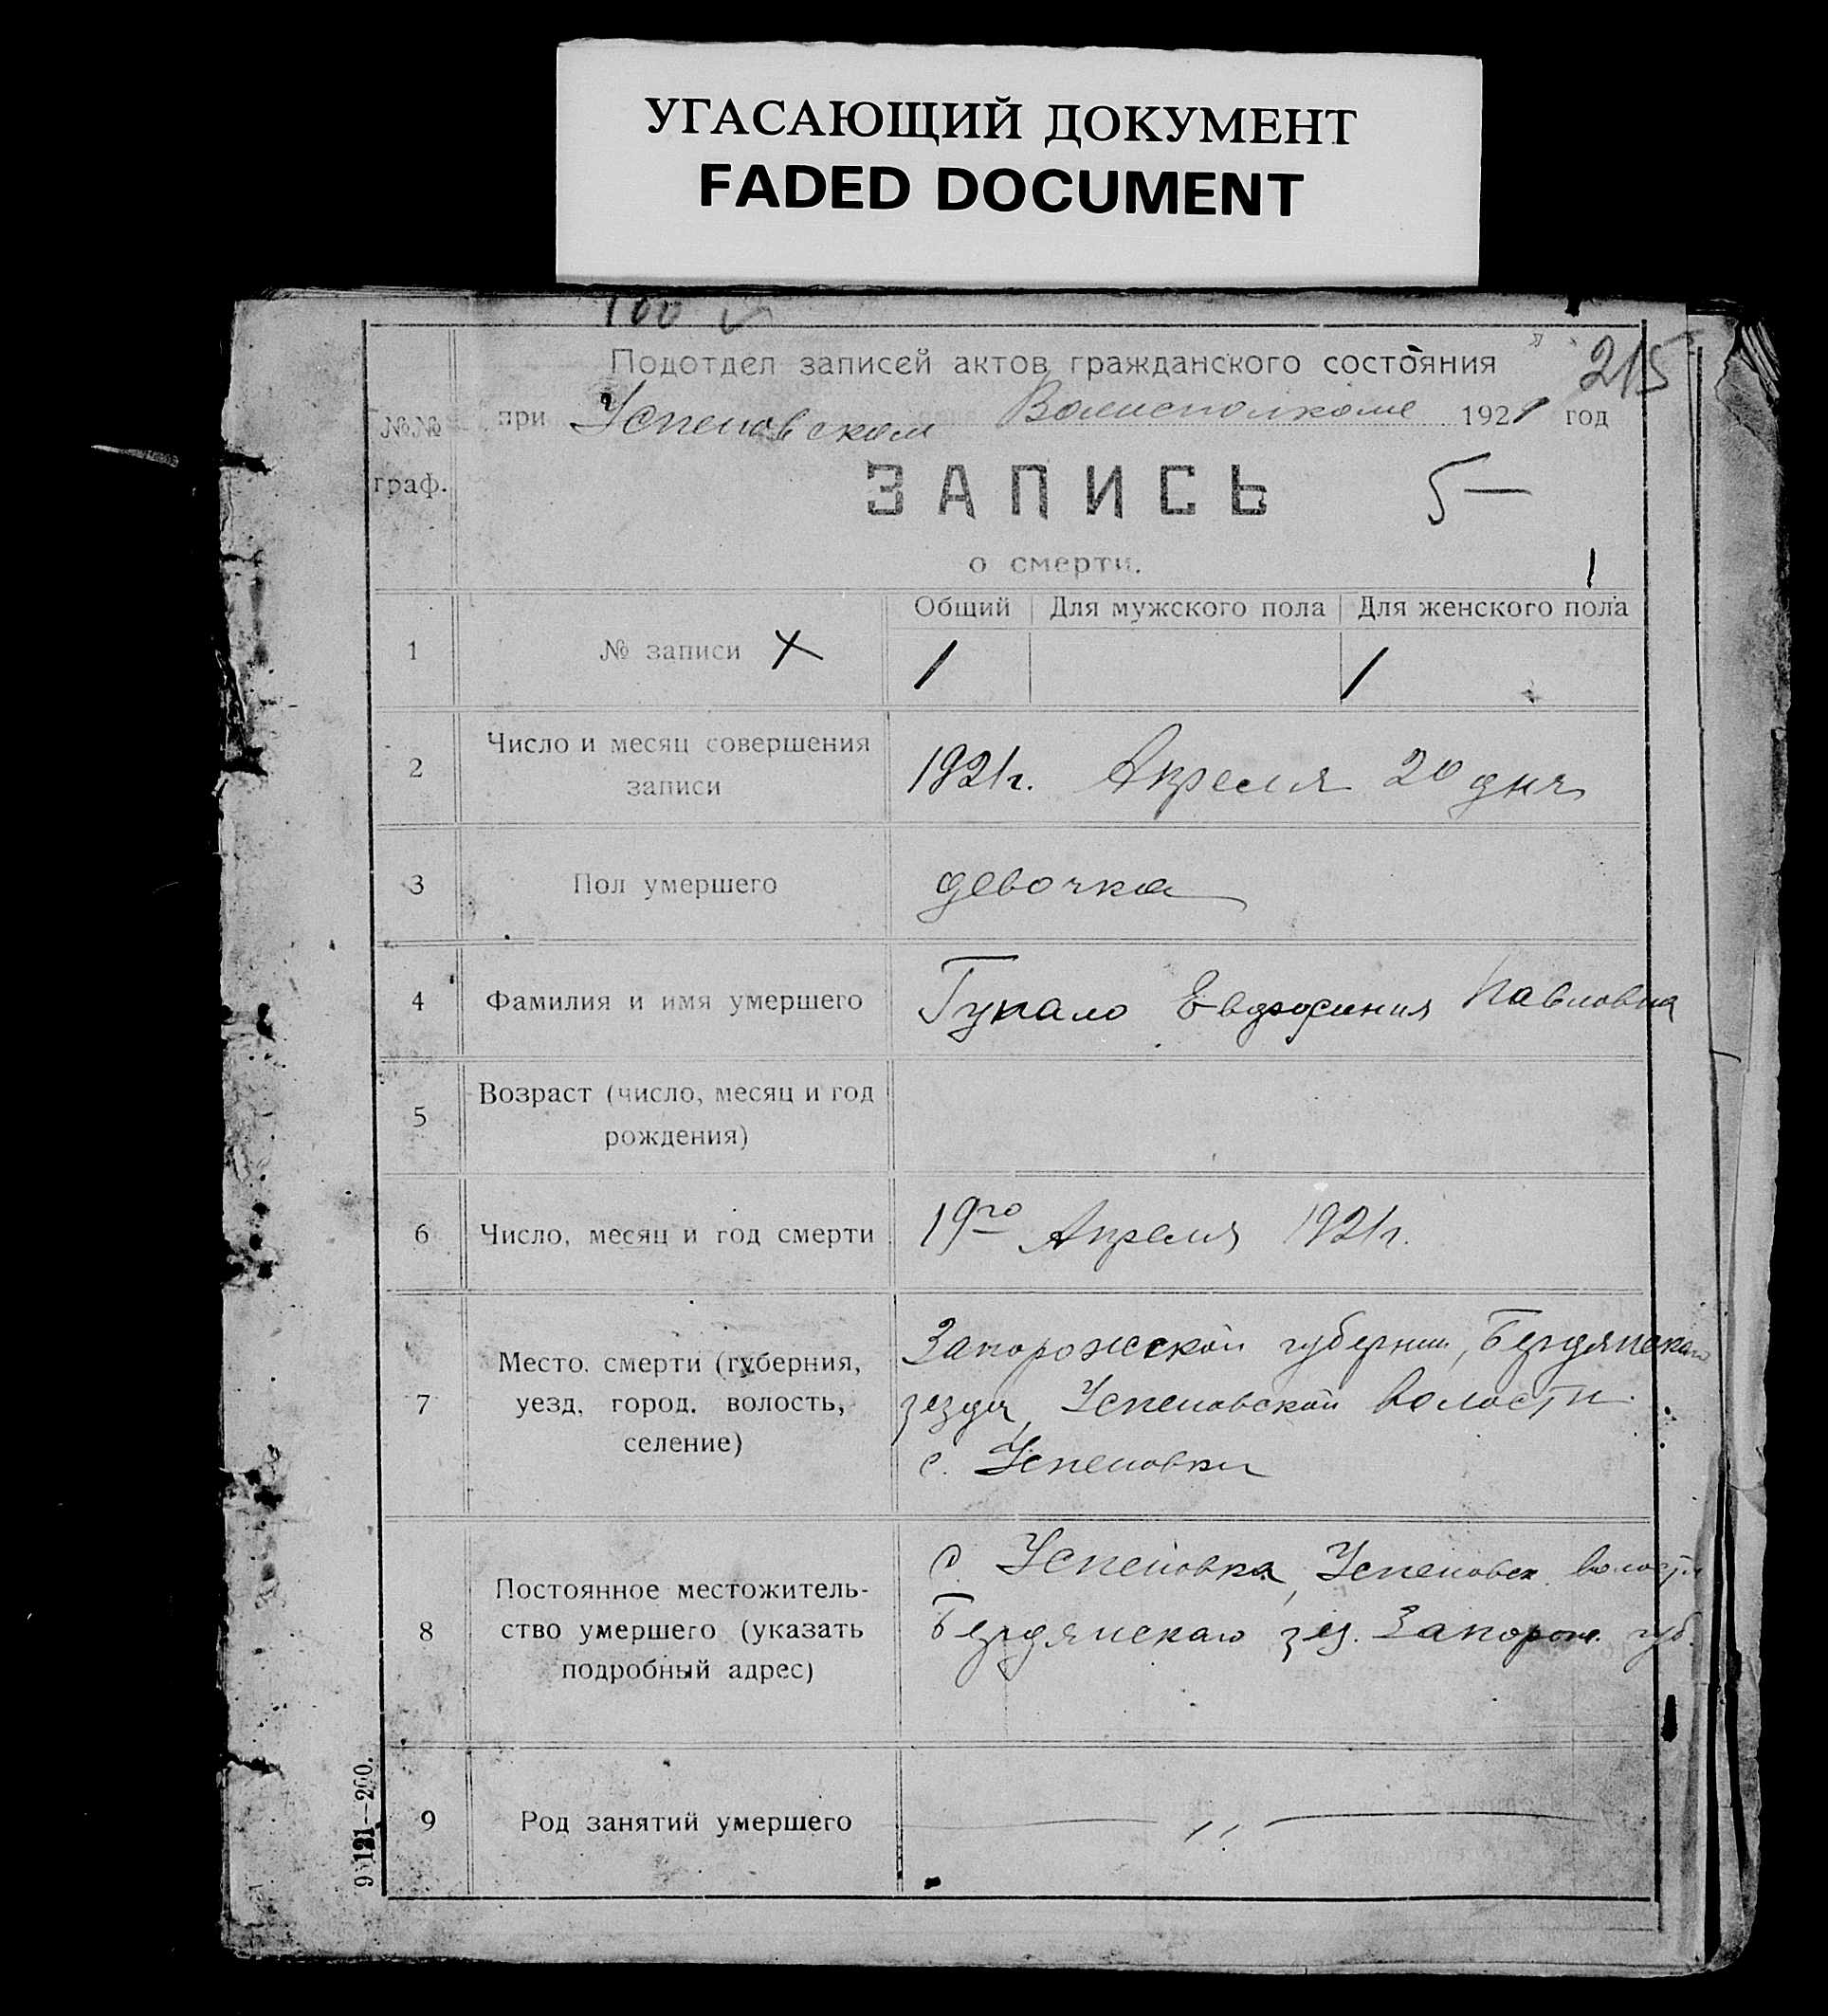 УГАСАЮЩИЙ ДОКУМЕНТ
FADED DOCUMENT
100
Подотдел записей актов гражданского состояния
215
№№ граф.
при Успеновском Волисполкоме 1921 год
ЗАПИСЬ
5—
о смерти.
1
Общий Для мужского пола Для женского пола
1 № записи X 1 1
2 Число и месяц совершения
записи
1921г. Апреля 20 дня
3 Пол умершего девочка
4 Фамилия и имя умершего Гупало Евдокиния Павловна
5 Возраст (число, месяц и год
рождения)
6 Число, месяц и год смерти 19го Апреля 1921г.
7 Место смерти (губерния,
уезд, город, волость,
селение)
Запорожской губернии, Бердянскаго
уезда, Успеновской волости
с. Успеновки
8 Постоянное местожитель-
ство умершего (указать
подробный адрес)
с. Успеновка, Успеновск. волости
Бердянскаго уез. Запорож. губ.
9 Род занятий умершего — ,, —
9 121—200.